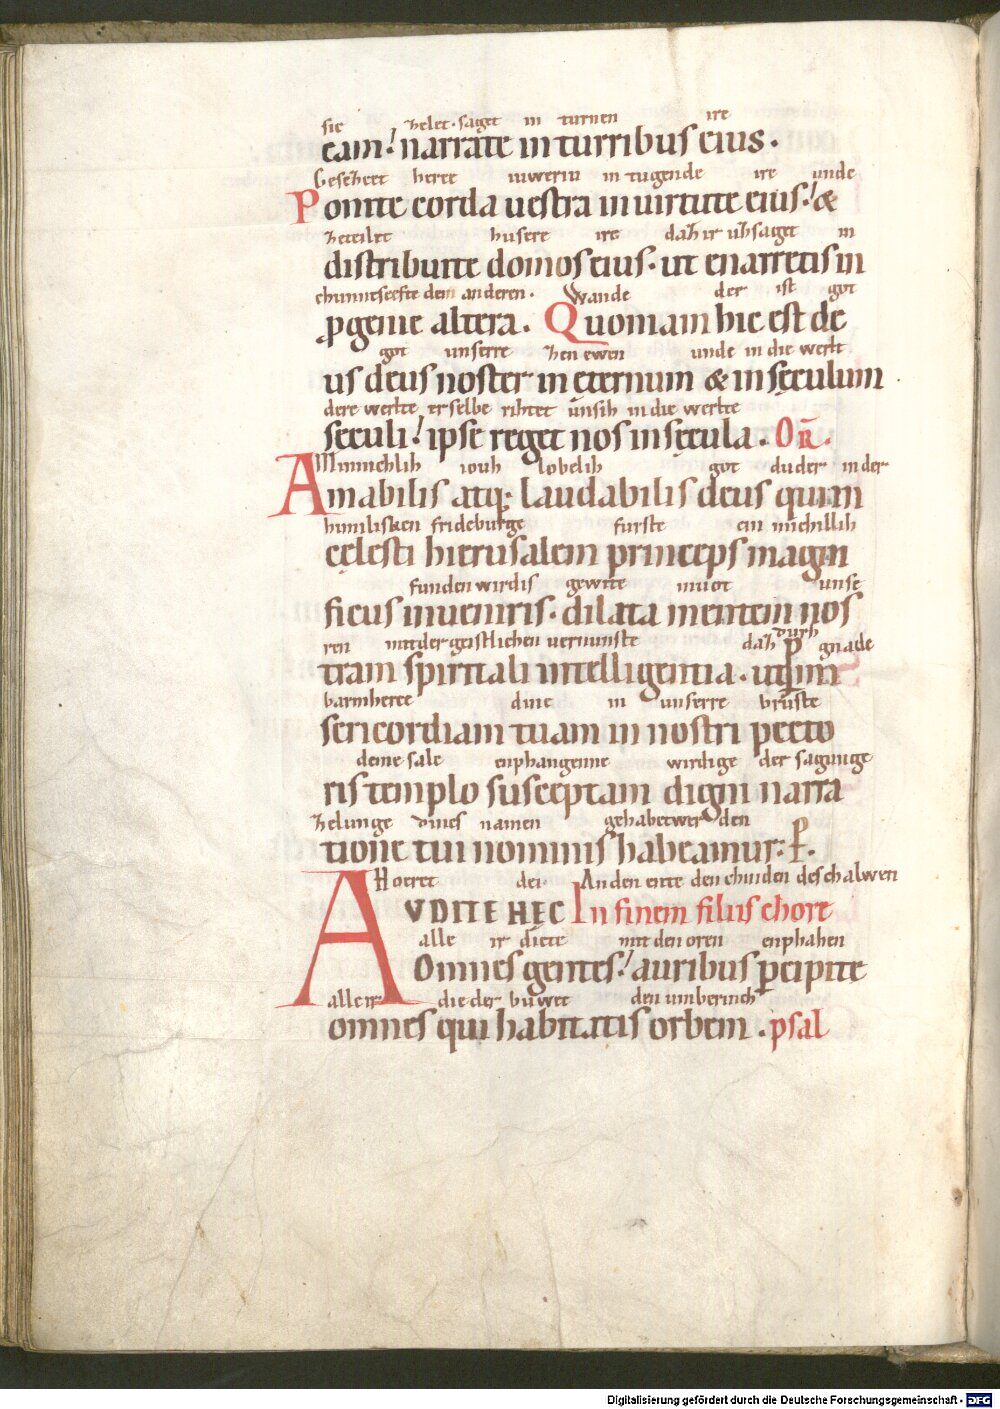 sie zelet · saget in turnen ire
eam! narrate in turribus eius ·
Gesezzet herze iuweriu in tugende ire unde
Ponite corda uestra in uirtute eius! &
zeteilet husere ire daz ir uzsaget in
distribuite domos eius · ut enarretis in
chunnescefte dem anderen · Wande der ist got
ꝓgenie altera . Quoniam hic est de
got unserre zen ewen unde in die werlt
us deus noster in ęternum & in sęculum
dere werlte er selbe rihtet unsih in die werlte
sęculi! ipse reget nos in sęcula . OR̄ .
Minnechlih iouh lobelih got du der in der
Amabilis atq; laudabilis deus qui in
himilisken frideburge furste ein michillih
cęlesti hierusalem princeps magni
funden wirdis gewite muot unse
ficus inueniris · dilata mentem nos
ren mit der geistlichen vernunste daz durh gnade
tram spiritali intelligentia · ut ꝑ mi
barmherce dine in unserre bruste
sericordiam tuam in nostri pecto
deine sale enphangenne wirdige der sagunge
ris templo susceptam digni narra
zelunge dines namen gehabet werden
tione tui nominis habeamur: P̵ ·
Hoeret dei · An den ente den chinden des chalwen
AVDITE HĘC In finem filiis chore
alle ir diete mit den oren enphahen
Omnes gentes! auribus ꝑcipite
alle ir die der buwet den umberinch
omnes qui habitatis orbem . psal
Digitalisierung gefördert durch die Deutsche Forschungsgemeinschaft - DFG